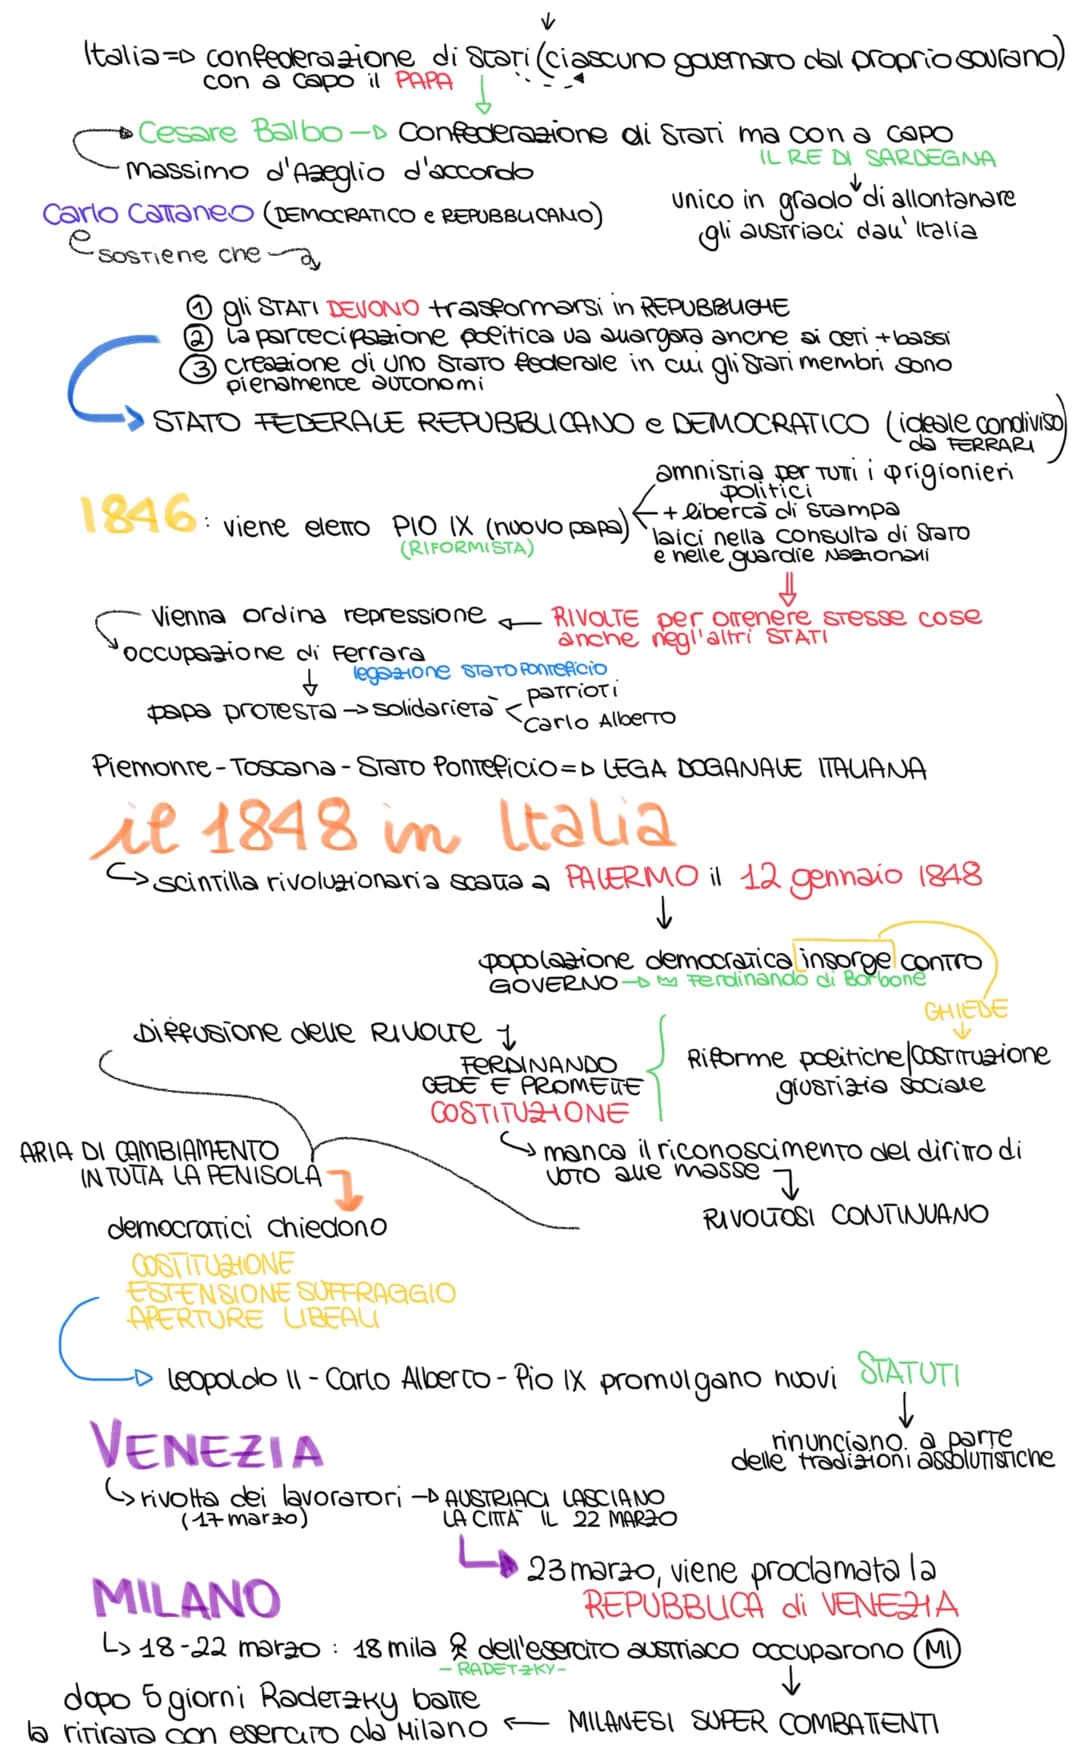 Italia => confederazione di stati (ciascuno governato dal proprio sovrano)
con a capo il PAPA
Cesare Balbo -> Confederazione di Stati ma con a capo
IL RE DI SARDEGNA
Massimo d'Azeglio d'accordo
unico in grado di allontanare
gli austriaci dall'Italia
Carlo Cattaneo (DEMOCRATICO e REPUBBLICANO)
e sostiene che
① gli STATI DEVONO trasformarsi in REPUBBLICHE
② la partecipazione politica va allargata anche ai ceti + bassi
③ creazione di uno stato federale in cui gli Stati membri sono
pienamente autonomi
STATO FEDERALE REPUBBLICANO e DEMOCRATICO (ideale condiviso
da FERRARI)
1846: viene eletto PIO IX (nuovo papa)
(RIFORMISTA)
amnistia per tutti i prigionieri
politici
+ libertà di stampa
laici nella consulta di Stato
e nelle guardie Nazionali
RIVOLTE per ottenere stesse cose
anche negl'altri STATI
Vienna ordina repressione
occupazione di Ferrara
legazione stato Pontificio
papa protesta -> solidarietà
patrioti
Carlo Alberto
Piemonte - Toscana - Stato Pontificio => LEGA DOGANALE ITALIANA
il 1848 in Italia
scintilla rivoluzionaria scatta a PALERMO il 12 gennaio 1848
popolazione democratica insorge contro
GOVERNO -> Ferdinando di Borbone
CHIEDE
Riforme politiche/Costituzione
giustizia sociale
Diffusione delle Rivolte
FERDINANDO
CEDE E PROMETTE
COSTITUZIONE
manca il riconoscimento del diritto di
voto alle masse
RIVOLTOSI CONTINUANO
ARIA DI CAMBIAMENTO
IN TUTTA LA PENISOLA
democratici chiedono
COSTITUZIONE
ESTENSIONE SUFFRAGGIO
APERTURE LIBEALI
Leopoldo II - Carlo Alberto - Pio IX promulgano nuovi STATUTI
rinunciano a parte
delle tradizioni assolutistiche
VENEZIA
rivolta dei lavoratori -> AUSTRIACI LASCIANO
(17 marzo)
LA CITTÀ IL 22 MARZO
23 marzo, viene proclamata la
REPUBBLICA di VENEZIA
MILANO
18-22 marzo: 18 mila dell'esercito austriaco occuparono MI
- RADETZKY -
MILANESI SUPER COMBATTENTI
dopo 5 giorni Radetzky batte
la ritirata con esercito da Milano